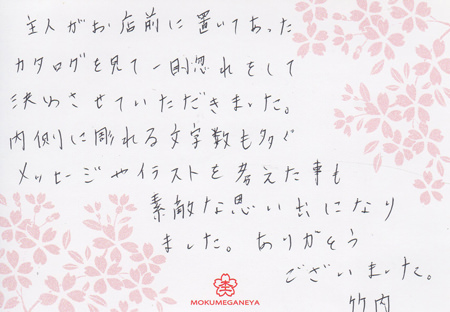 主人がお店前に置いてあった
カタログを見て一目惚れをして
決めさせていただきました。
内側に彫れる文字数も多く
メッセージやイラストを考えた事も
素敵な思い出になり
ました。ありがとう
ございました。
竹内
MOKUMEGANEYA